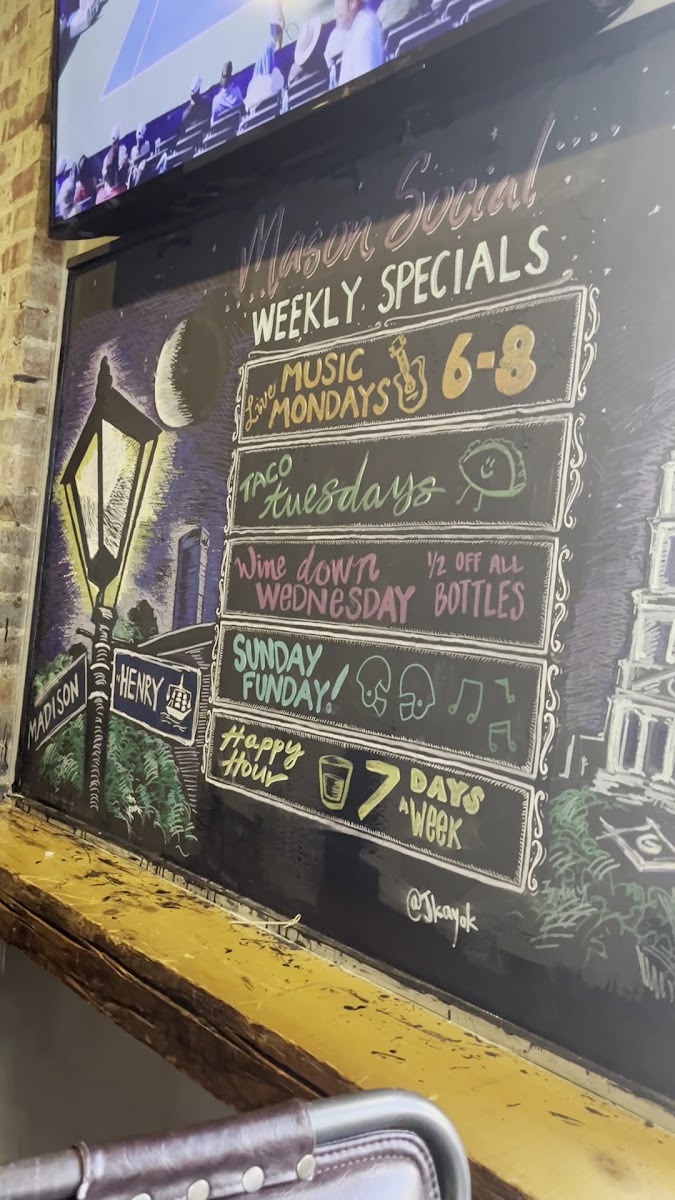 Mason Social
WEEKLY SPECIALS
Live MUSIC MONDAYS 6-8
TACO tuesdays
Wine down WEDNESDAY 1/2 OFF ALL BOTTLES
SUNDAY FUNDAY!
Happy Hour 7 DAYS A WEEK
MADISON
HENRY
@Jkayok